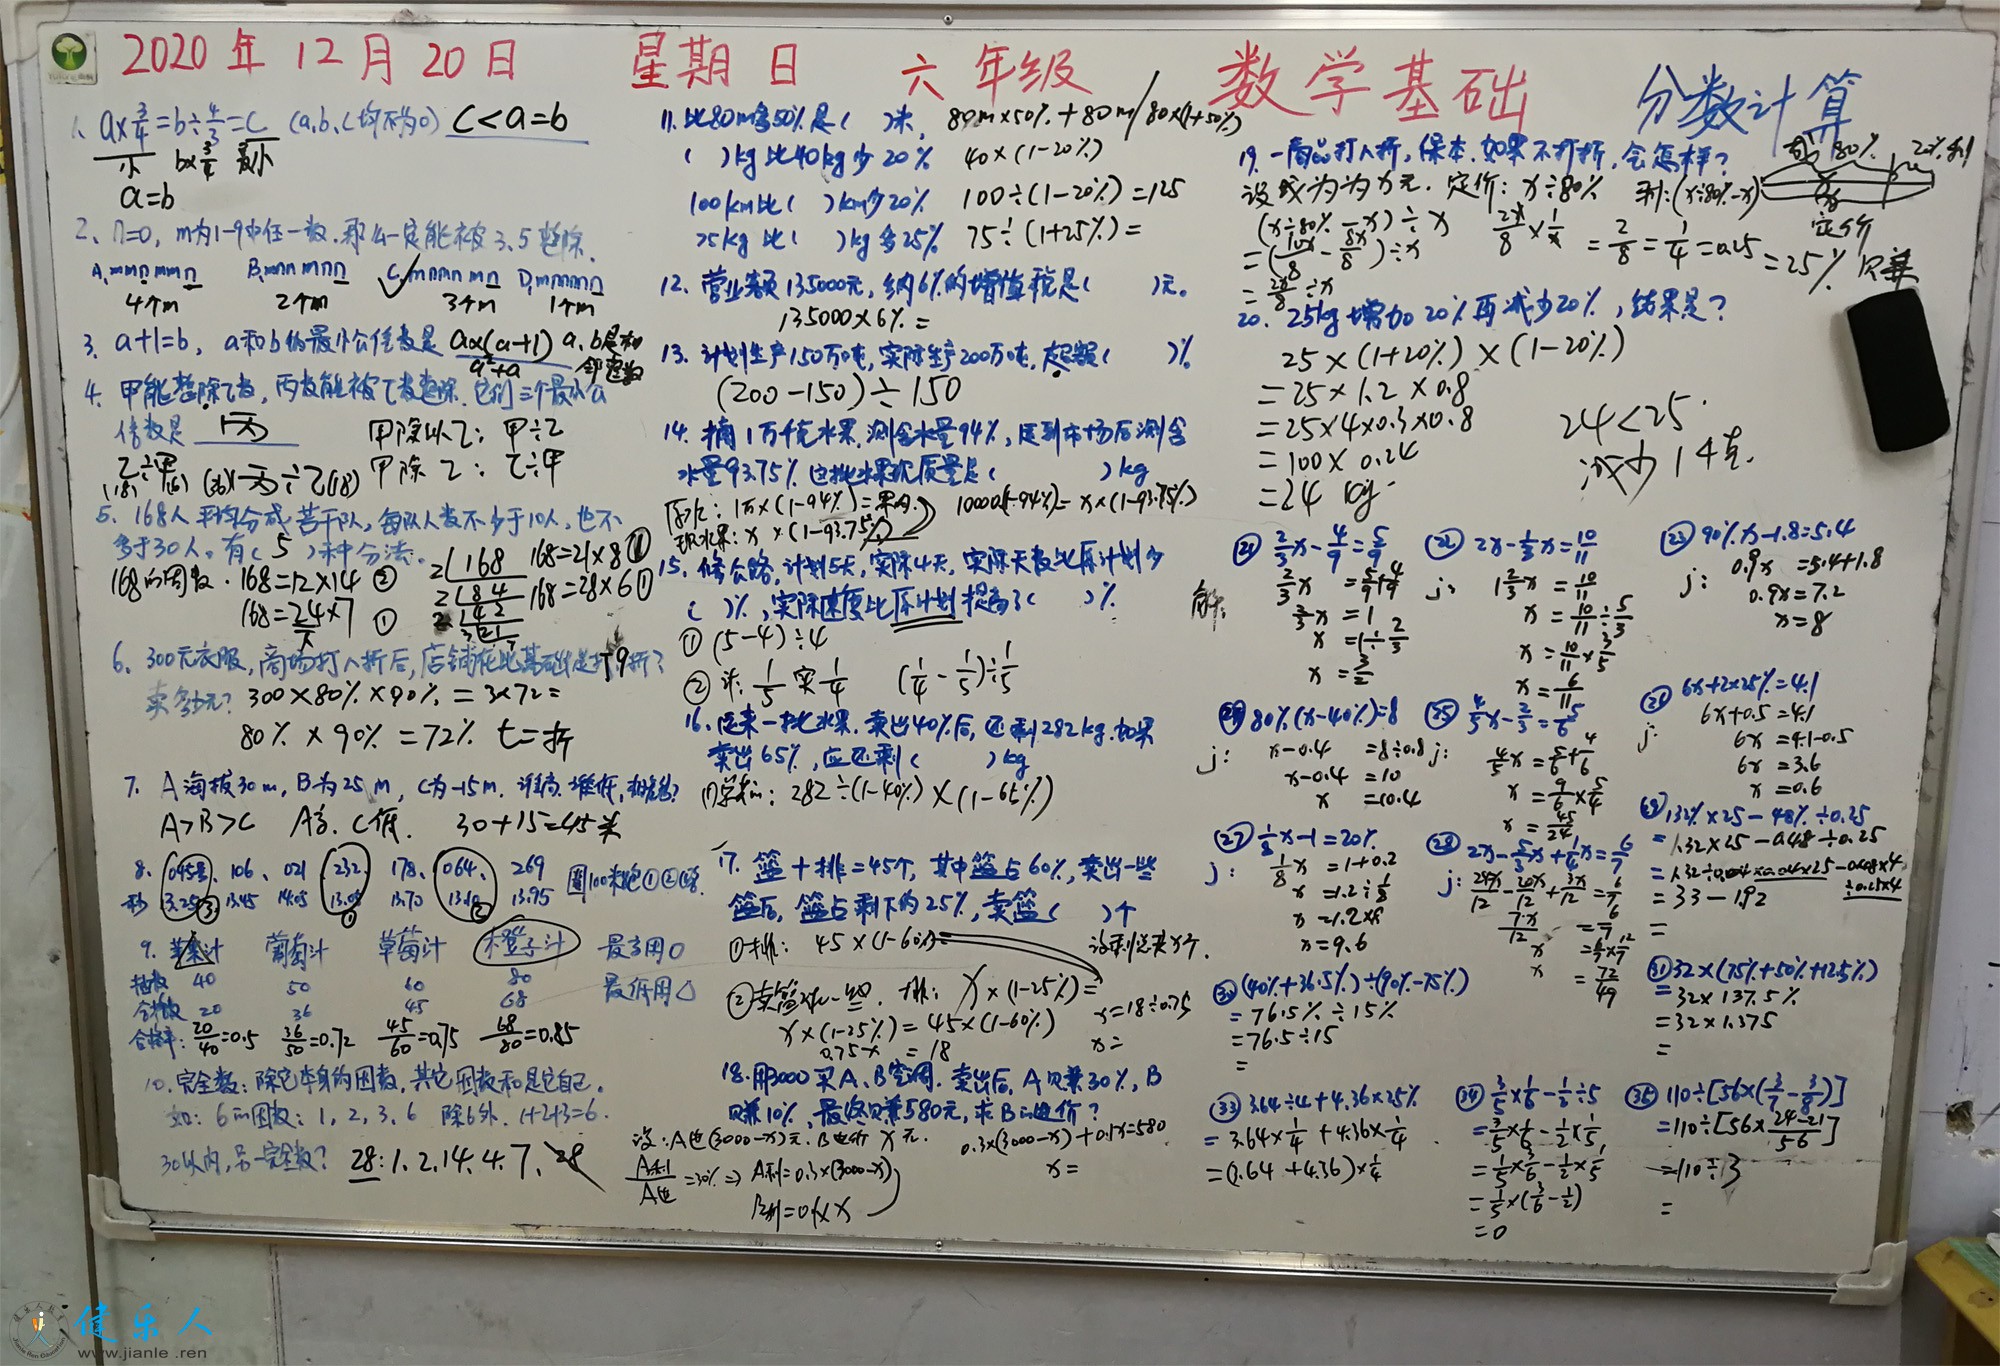 2020年12月20日 星期日 六年级 数学基础 分数计算
1. a×3/4=b÷4/3=c (a,b,c均不为0) c<a=b
小 b×3/4 最小
a=b
2、n=0, m为1-9中任一数.那么一定能被3、5整除.
A.mmnmmn B.mnnmnn C.mnnnmn D.mnnnn
4个m 2个m 3个m 1个m
3. a+1=b, a和b的最小公倍数是 a×(a+1) a、b是相
a²+a 邻自然数
4. 甲能整除乙数, 丙数能被乙数整除.它们三个最小公
倍数是 丙 甲除以乙: 甲÷乙
甲除乙: 乙÷甲
5. 168人平均分成若干队, 每队人数不少于10人, 也不
多于30人。有( 5 )种分法。
168的因数. 168=12×14 ②
168=24×7 ①
2 168 168=21×8 ①
2 84 168=28×6 ①
2 42
3 21
7
6. 300元衣服, 商场打八折后, 店铺在此基础上是打9折?
卖多少元? 300×80%×90%=3×72=
80%×90%=72% 七=折
7. A海拔30m, B为25m, C为-15m. 谁高.谁低,相差?
A>B>C A高. C低. 30+15=45米
8. 045号、106、021、232、178、064、269 100米跑①②③
秒 13.45 14.05 13.70 13.95
9. 苹果汁 葡萄汁 草莓汁 橙子汁 最高用○
抽数 40 50 60 80 最低用△
合格数 20 36 45 68
合格率: 20/40=0.5 36/50=0.72 45/60=0.75 68/80=0.85
10. 完全数: 除它本身的因数, 其它因数和是它自己。
如: 6的因数: 1, 2, 3, 6 除6外. 1+2+3=6.
30以内, 另一完全数? 28:1.2.14.4.7、28
11. 比80m多50%是( )米. 80m×50%+80m/80×(1+50%)
( )kg比40kg少20% 40×(1-20%)
100km比( )km少20% 100÷(1-20%)=125
75kg比( )kg多25% 75÷(1+25%)=
12. 营业额135000元, 纳6%的增值税是( )元。
135000×6%=
13. 计划生产150万吨, 实际生产200万吨, 超额( )%
(200-150)÷150
14. 摘1万千克水果, 测含水量94%, 运到市场后测含
水量93.75%.这批水果现质量是( )kg
原水: 1万×(1-94%)=果肉. 10000(1-94%)=x×(1-93.75%)
现水果: x×(1-93.75%)
15. 修公路, 计划5天, 实际4天, 实际天数比原计划少
( )%, 实际速度比原计划提高了( )%
①(5-4)÷4
② 计1/5 实1/4 (1/4-1/5)÷1/5
16. 运来一批水果, 卖出40%后, 还剩282kg.如果
卖出65%, 应还剩( )kg
282÷(1-40%)×(1-65%)
17. 篮+排=45个, 其中篮占60%, 卖出一些
篮后, 篮占剩下的25%, 卖篮( )个
①排: 45×(1-60%)=
②卖篮球一些. 排: x×(1-25%)=
x×(1-25%)=45×(1-60%) x=18÷0.75
0.75x=18 x=
18. 用3000买A、B空调. 卖出后, A只赚30%, B
只赚10%, 最终只赚580元, 求B的进价?
设:A进(3000-x)元. B进价x元. 0.3×(3000-x)+0.1x=580
A利/A进=30%⇒A利=0.3×(3000-x) x=
B利=0.1×x
19. 一商品打八折, 保本.如果不打折, 会怎样?
设成为为x元. 定价: x÷80% 利:(x÷80%-x)
80% 20%利
定价
(x÷80%-x)÷x 2x/8×1/x
=(10x/8-8x/8)÷x =2/8=1/4=0.25=25% 只赚
=2x/8÷x
20. 25kg增加20%再减少20%, 结果是?
25×(1+20%)×(1-20%)
=25×1.2×0.8
=25×4×0.3×0.8 24<25.
=100×0.24 减少1千克.
=24 kg.
㉑ 2/3x-4/9=5/9
解: 2/3x=5/9+4/9
2/3x=1
x=1÷2/3
x=3/2
㉒ 2x-1/3x=10/11
j: 1 2/3x=10/11
x=10/11÷5/3
x=10/11×3/5
x=6/11
㉓ 90%x-1.8=5.4
j: 0.9x=5.4+1.8
0.9x=7.2
x=8
㉔ 80%(x-40%)=8
j: x-0.4=8÷0.8
x-0.4=10
x=10.4
㉕ 4/5x-2/3=5/6
j: 4/5x=5/6+4/6
x=9/6×5/4
x=45/24
㉖ 6x+2×25%=4.1
j: 6x+0.5=4.1
6x=4.1-0.5
6x=3.6
x=0.6
㉗ 1/8x-1=20%
j: 1/8x=1+0.2
x=1.2÷1/8
x=1.2×8
x=9.6
㉘ 2x-5/3x+1/4x=6/7
j: 24x/12-20x/12+3x/12=6/7
7x/12=6/7
x=6/7×12/7
x=72/49
㉙ 132%×25-48%÷0.25
=1.32×25-0.48÷0.25
=33-1.92
=
㉚ (40%+36.5%)÷(90%-75%)
=76.5%÷15%
=76.5÷15
=
㉛ 32×(75%+50%+12.5%)
=32×137.5%
=32×1.375
=
㉝ 3.64÷4+4.36×25%
=3.64×1/4+4.36×1/4
=(3.64+4.36)×1/4
㉞ 3/5×1/6-1/2÷5
=3/5×1/6-1/2×1/5
=1/5×3/6-1/2×1/5
=1/5×(3/6-1/2)
=0
㉟ 110÷[56×(3/7-3/8)]
=110÷[56×24-21/56]
=110÷3
=
健乐人
www.jianle.ren